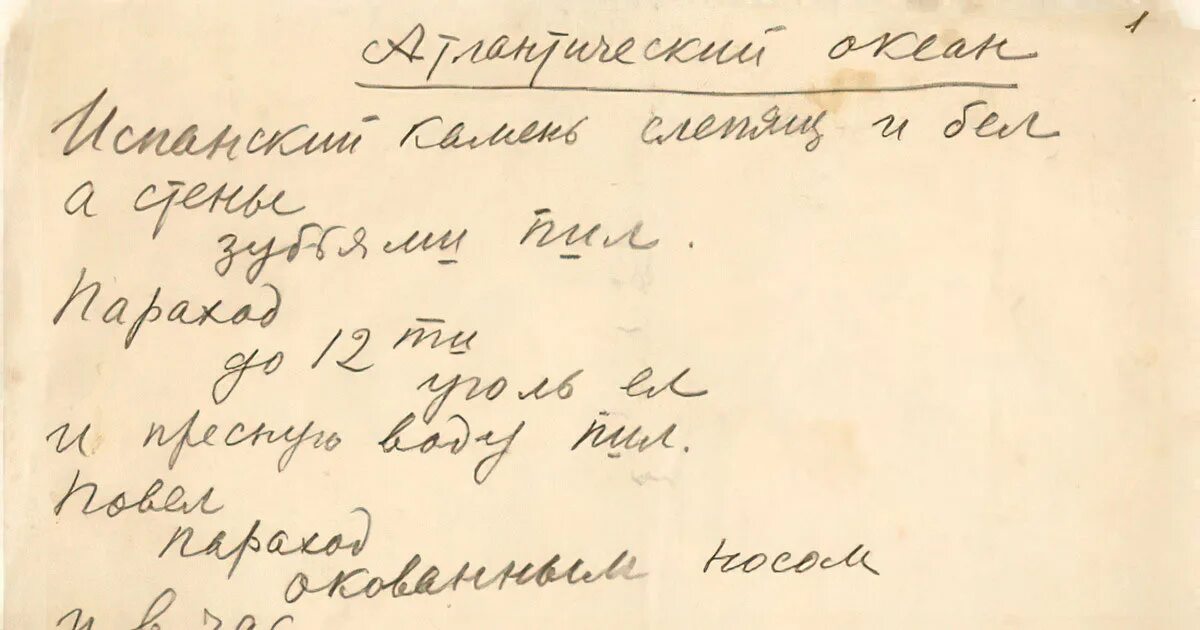 1
Атлантический океан
Испанский камень слепящ и бел
а стены
зубьями пил.
Параход
до 12 ти
уголь ел
и пресную воду пил.
Повел
параход
окованным носом
и в час